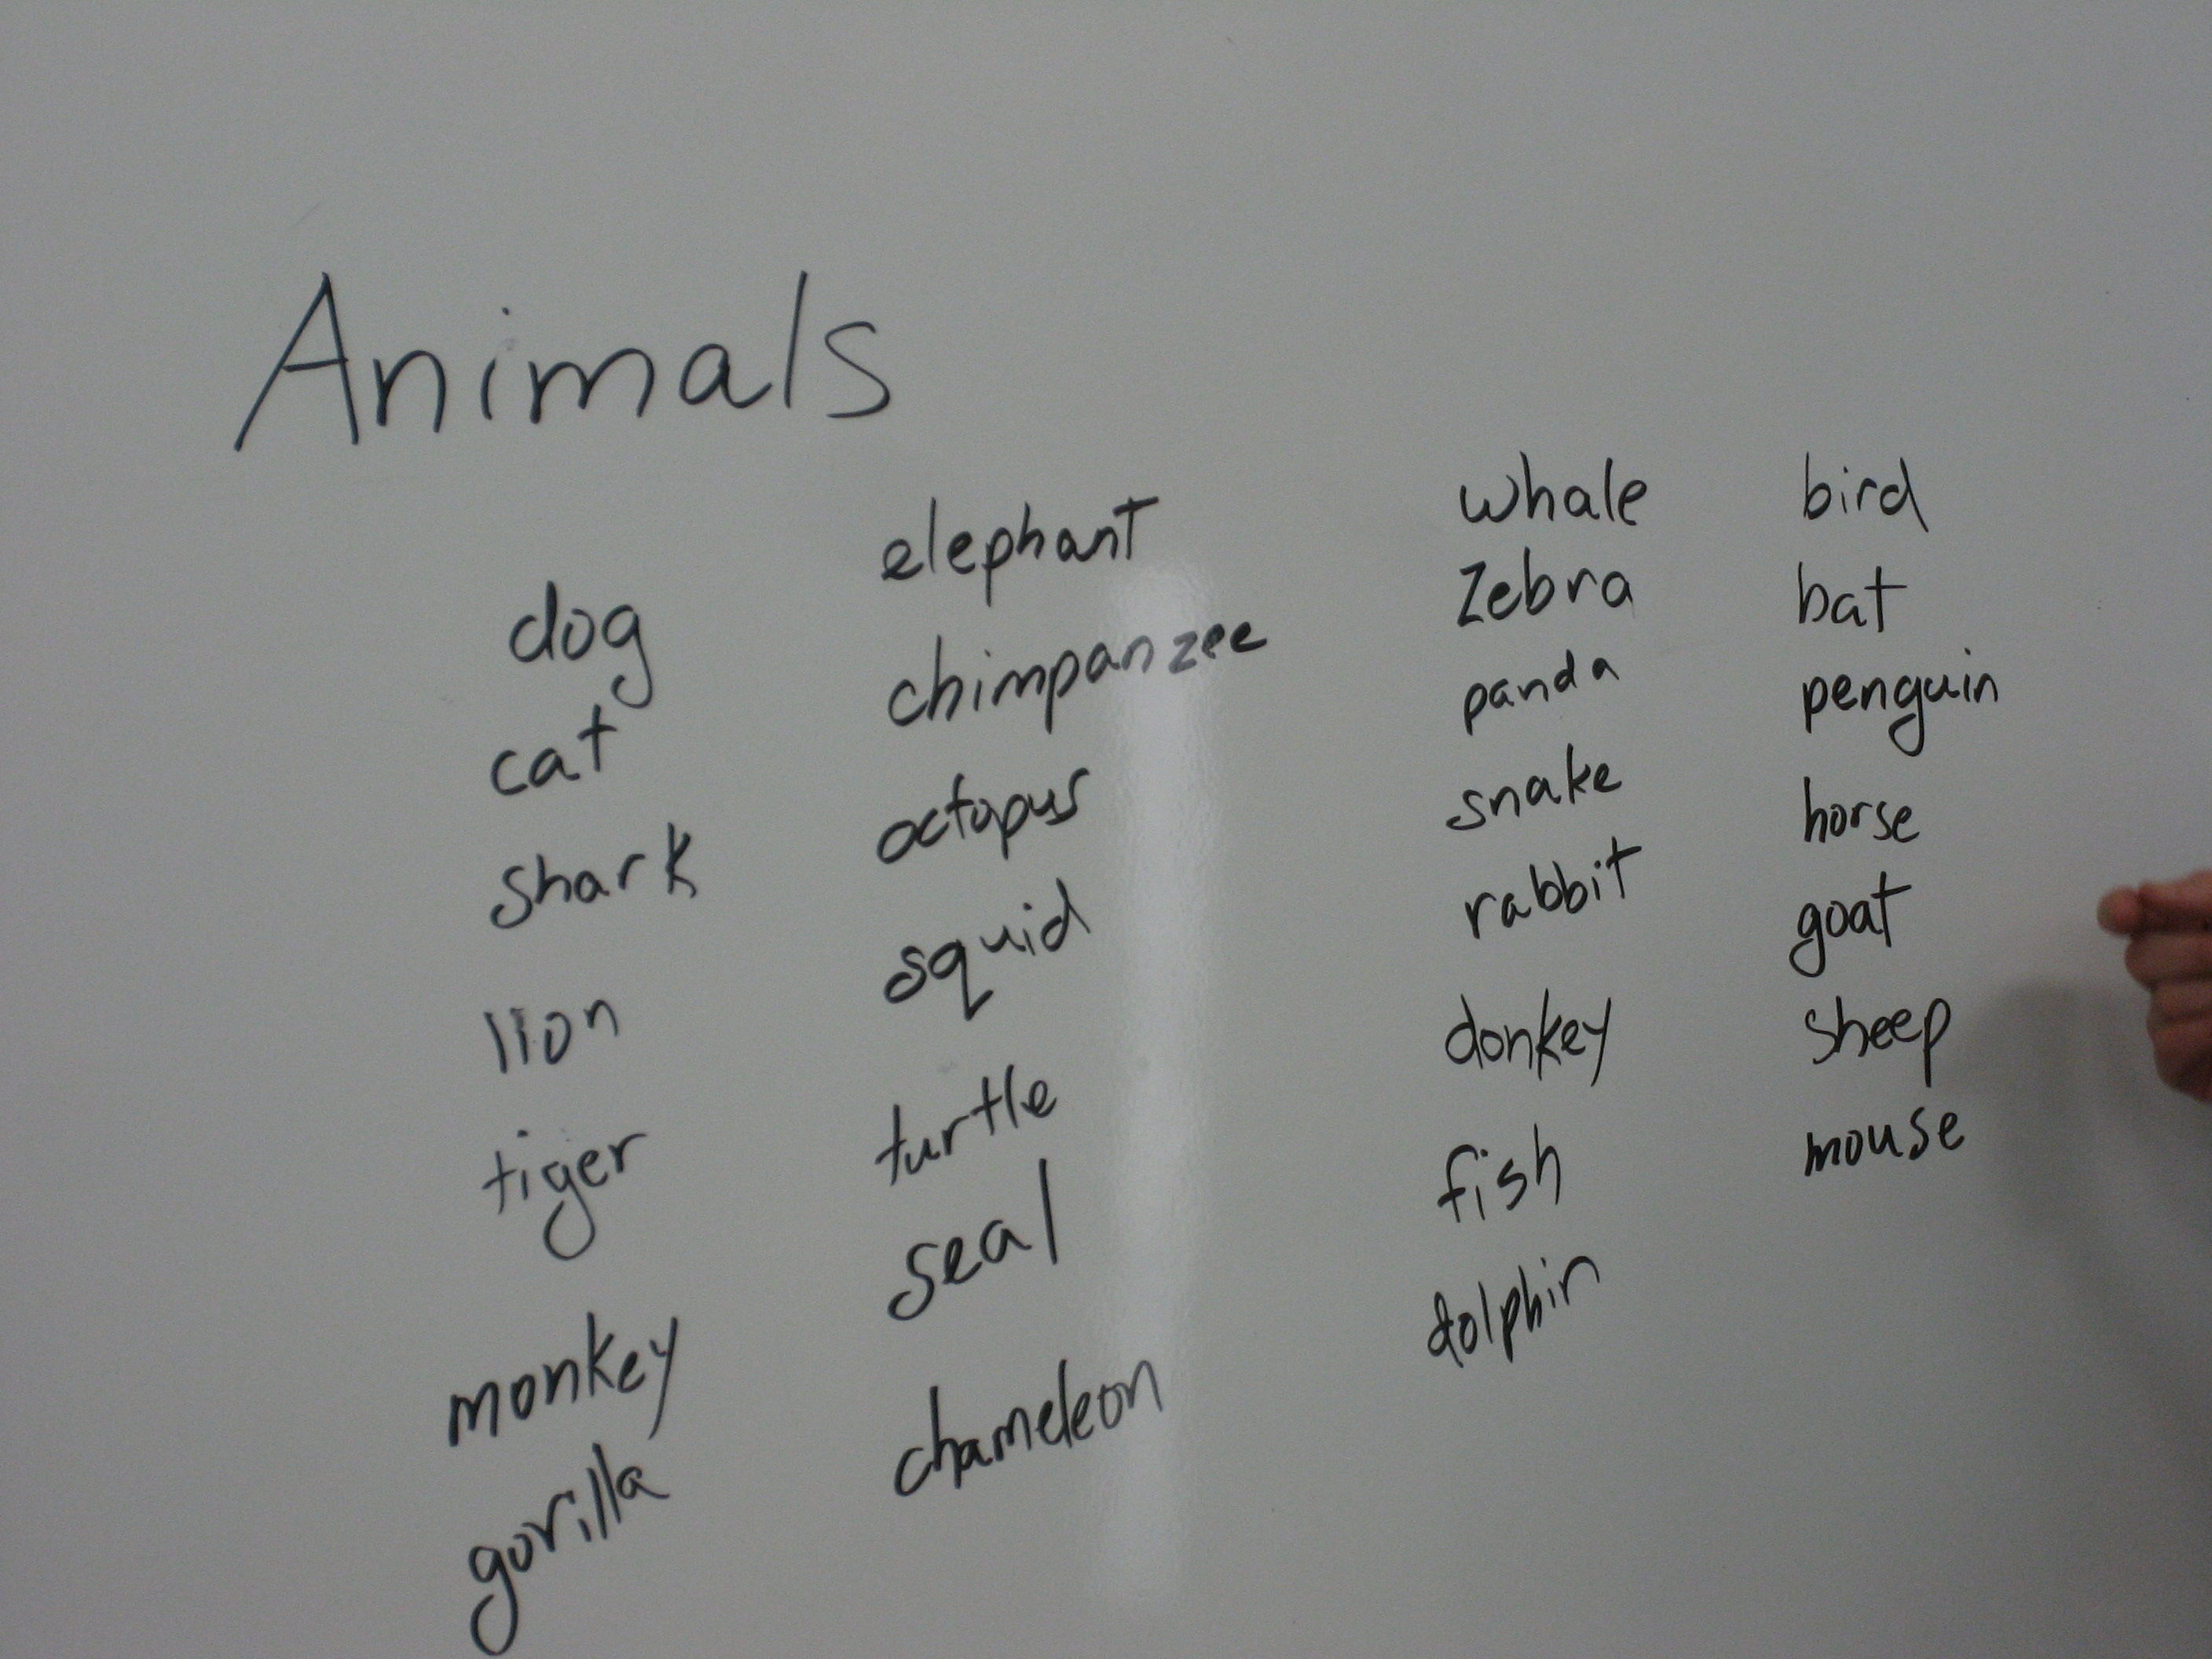 Animals
dog
cat
shark
lion
tiger
monkey
gorilla
elephant
chimpanzee
octopus
squid
turtle
seal
chameleon
whale
zebra
panda
snake
rabbit
donkey
fish
dolphin
bird
bat
penguin
horse
goat
sheep
mouse